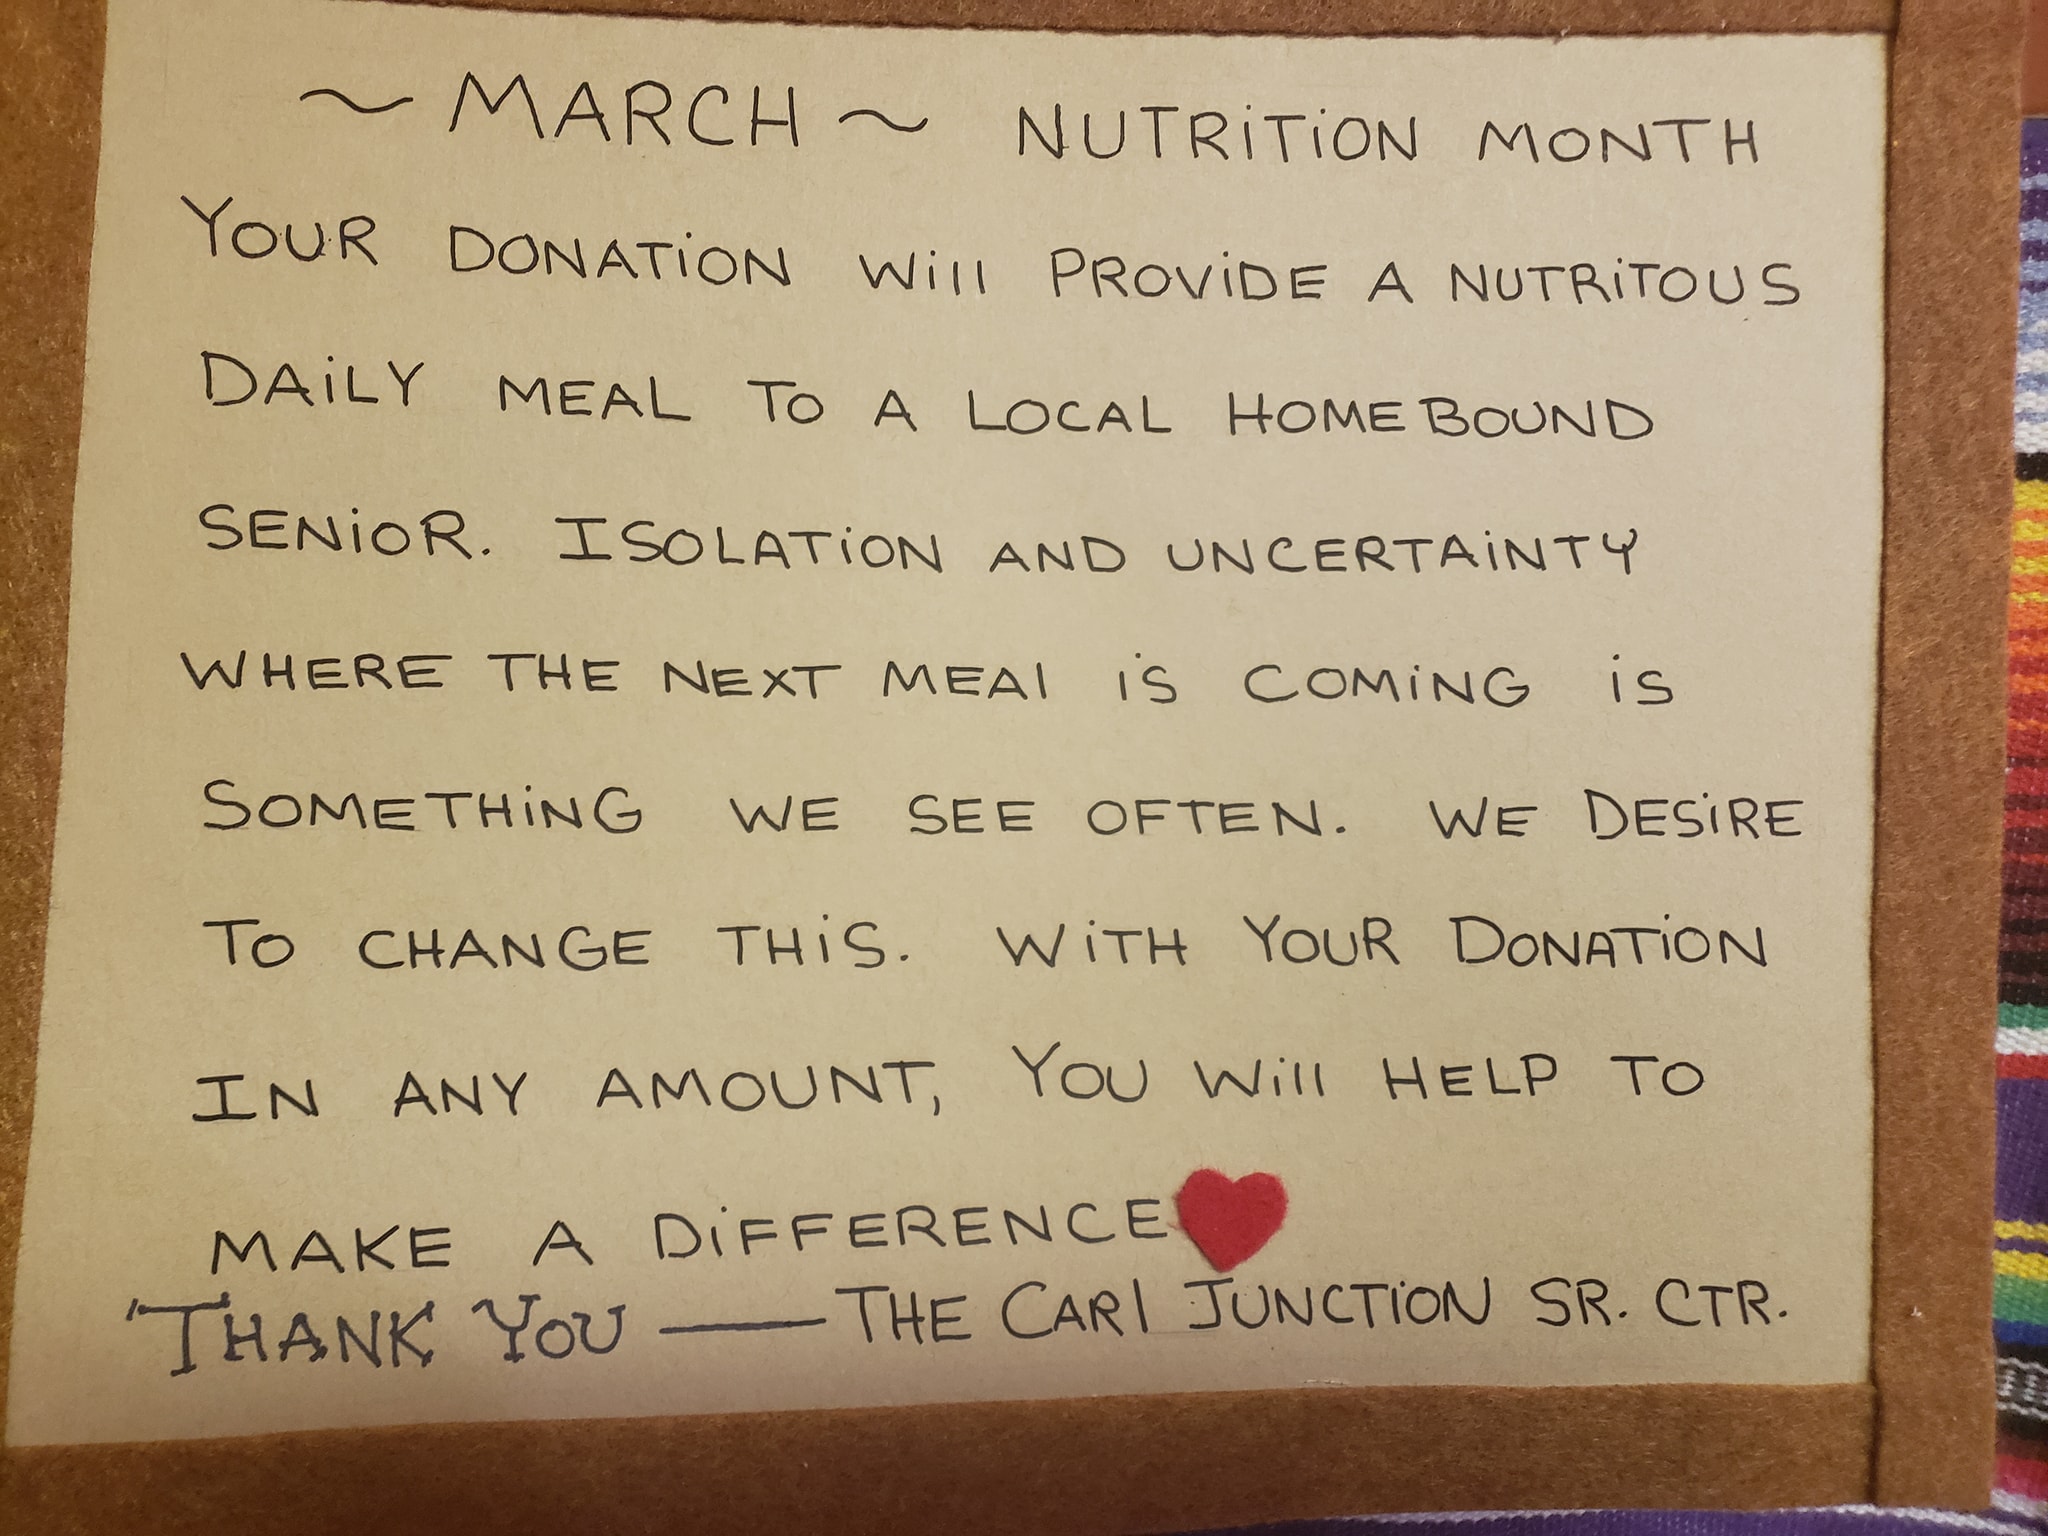 ~ MARCH ~ NUTRITION MONTH
YOUR DONATION Will PROVIDE A NUTRITOUS
DAILY MEAL TO A LOCAL HOMEBOUND
SENIOR. ISOLATION AND UNCERTAINTY
WHERE THE NEXT MEAl IS COMING IS
SOMETHING WE SEE OFTEN. WE DESIRE
TO CHANGE THIS. WITH YOUR DONATION
IN ANY AMOUNT, YOU Will HELP TO
MAKE A DIFFERENCE
THANK YOU — THE CARl JUNCTION SR. CTR.